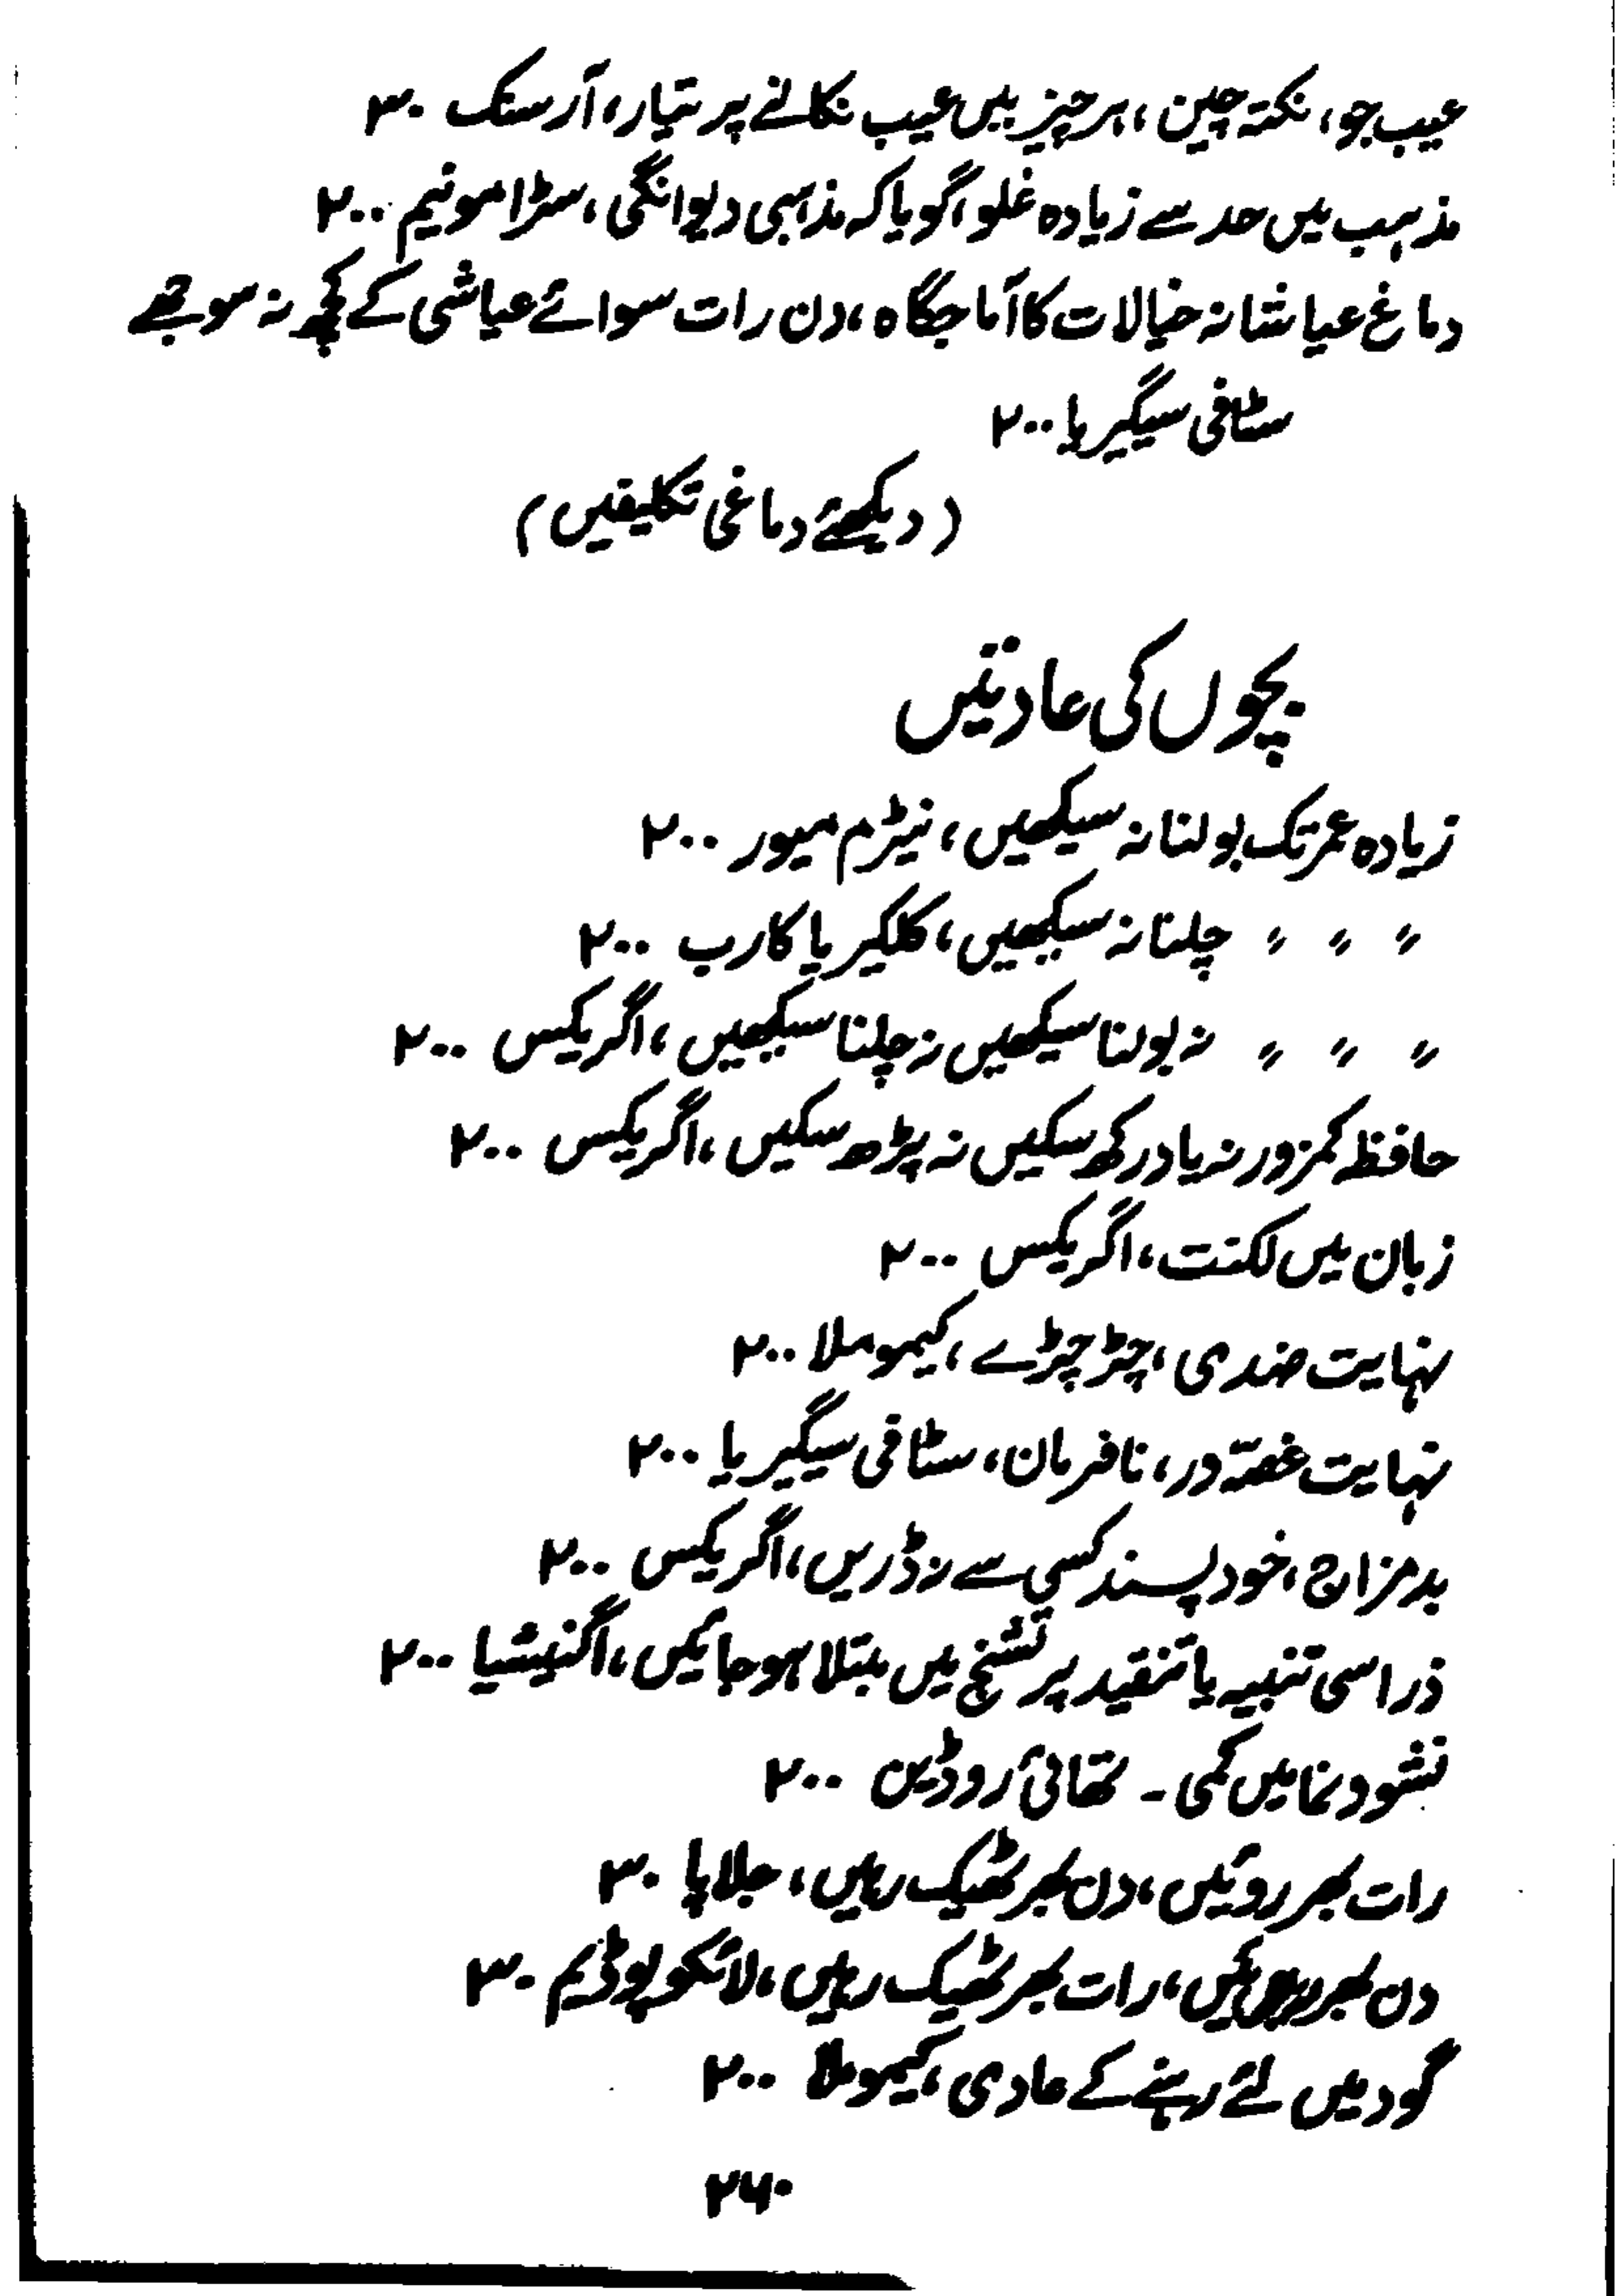 عیب جو، نکتہ چین، ہر چیز میں عیب نکالنے پر تیار، آرسنک ۳۰
مذہب میں حد سے زیادہ غلو، گویا کہ مذہبی دیوانگی، سٹرامونیم ۲۰۰
دماغ عیاشانہ خیالات کا آماجگاہ، دن رات سوائے عیاشی کے کچھ نہ سوجھے
سٹافی سیگیریا ۲۰۰
(دیکھئے دماغی تکلیفیں)
بچوں کی عادتیں
زیادہ عمر تک بولنا نہ سیکھیں، نیٹرم میور ۲۰۰
〃 〃 〃 چلنا نہ سیکھیں، کلکیریا کارب ۲۰۰
〃 〃 〃 نہ بولنا سیکھیں نہ چلنا سیکھیں، اگریکس ۲۰۰
حافظہ کمزور نہ یاد رکھ سکیں نہ پڑھ سکیں، اگریکس ۲۰۰
زبان میں لکنت، اگریکس ۲۰۰
نہایت ضدی، چڑچڑے، کیموملا ۲۰۰
نہایت غصّہ ور، نافرمان، سٹافی سیگیریا ۲۰۰
بدمزاج، خود پسند کسی سے نہ ڈریں، اگریکس ۲۰۰
ذرا سی تنبیہ یا تنقید پر تشنج میں مبتلا ہو جائیں، اگنیشیا ۲۰۰
نشوونما میں کمی ۔ تھائی روڈین ۲۰۰
رات بھر روئیں، دن بھر ٹھیک رہیں، جلاپا ۳۰
دن بھر روئیں، رات بھر ٹھیک رہیں، لائکوپوڈیم ۳۰
گود میں لئے رہنے کے عادی، کیموملا ۲۰۰
۲۶۰